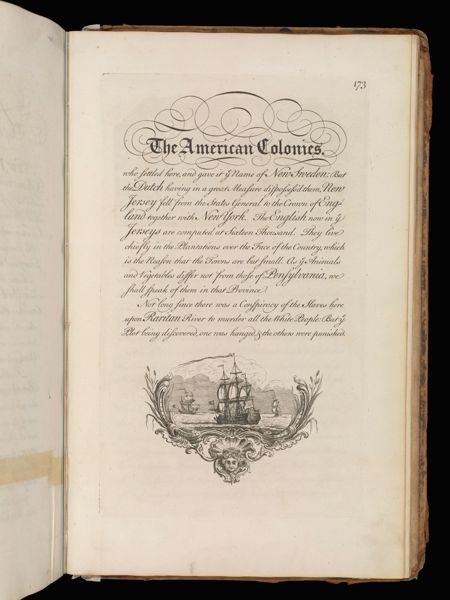 173
The American Colonies.
who settled here, and gave it ẏ Name of New Sweden: But
the Dutch having in a great Measure dispossessed them, New
Jersey fell from the States General to the Crown of Eng=
land together with New York. The English now in ẏ
Jerseys are computed at Sixteen Thousand. They live
chiefly in the Plantations over the Face of the Country, which
is the Reason that the Towns are but small. As ẏ Animals
and Vegetables differ not from those of Pensylvania, we
shall speak of them in that Province.
Not long since there was a Conspiracy of the Slaves here
upon Raritan River to murder all the White People: But ẏ
Plot being discovered, one was hanged, & the others were punished.